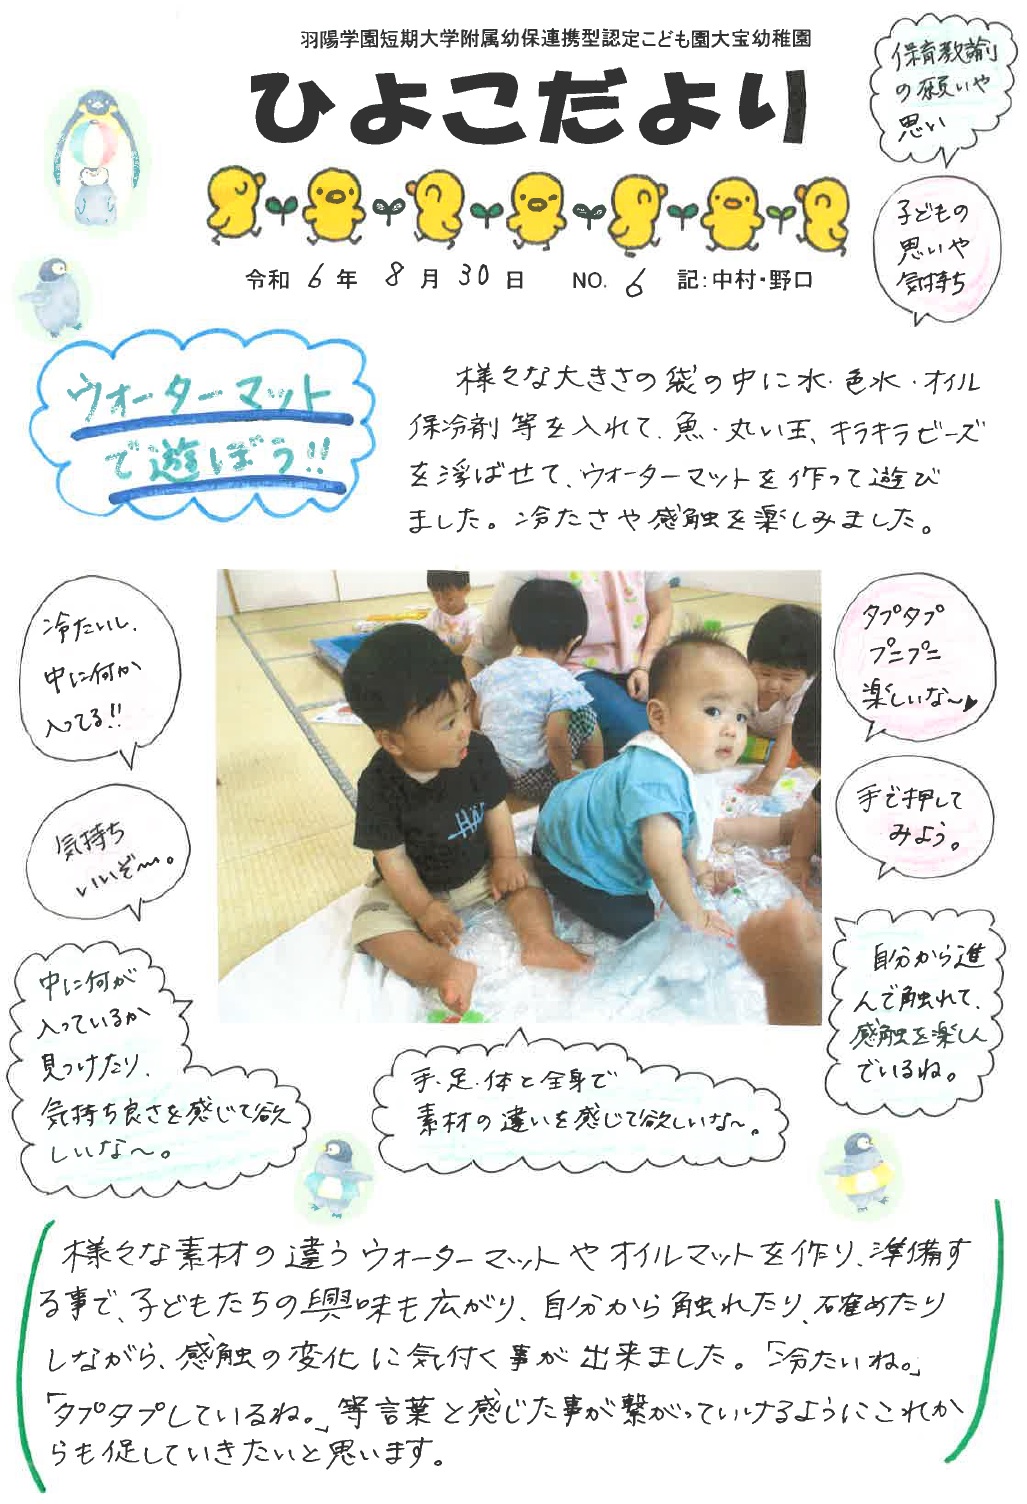 羽陽学園短期大学附属幼保連携型認定こども園大宝幼稚園
ひよこだより
令和 6 年 8 月 30 日 NO. 6 記:中村・野口
保育教諭
の願いや
思い
子どもの
思いや
気持ち
ウォーターマット
で遊ぼう!!
様々な大きさの袋の中に水・色水・オイル
保冷剤等を入れて、魚・丸い玉、キラキラビーズ
を浮ばせて、ウォーターマットを作って遊び
ました。冷たさや感触を楽しみました。
冷たいし、
中に何か
入ってる!!
気持ち
いいぞ〜。
タプタプ
プニプニ
楽しいな〜♥
手で押して
みよう。
中に何が
入っているか
見つけたり、
気持ち良さを感じて欲
しいな〜。
手・足・体と全身で
素材の違いを感じて欲しいな〜。
自分から進
んで触れて、
感触を楽しん
でいるね。
様々な素材の違うウォーターマットやオイルマットを作り、準備す
る事で、子どもたちの興味も広がり、自分から触れたり、確めたり
しながら、感触の変化に気付く事が出来ました。「冷たいね。」
「タプタプしているね。」等言葉と感じた事が繋がっていけるようにこれか
らも促していきたいと思います。